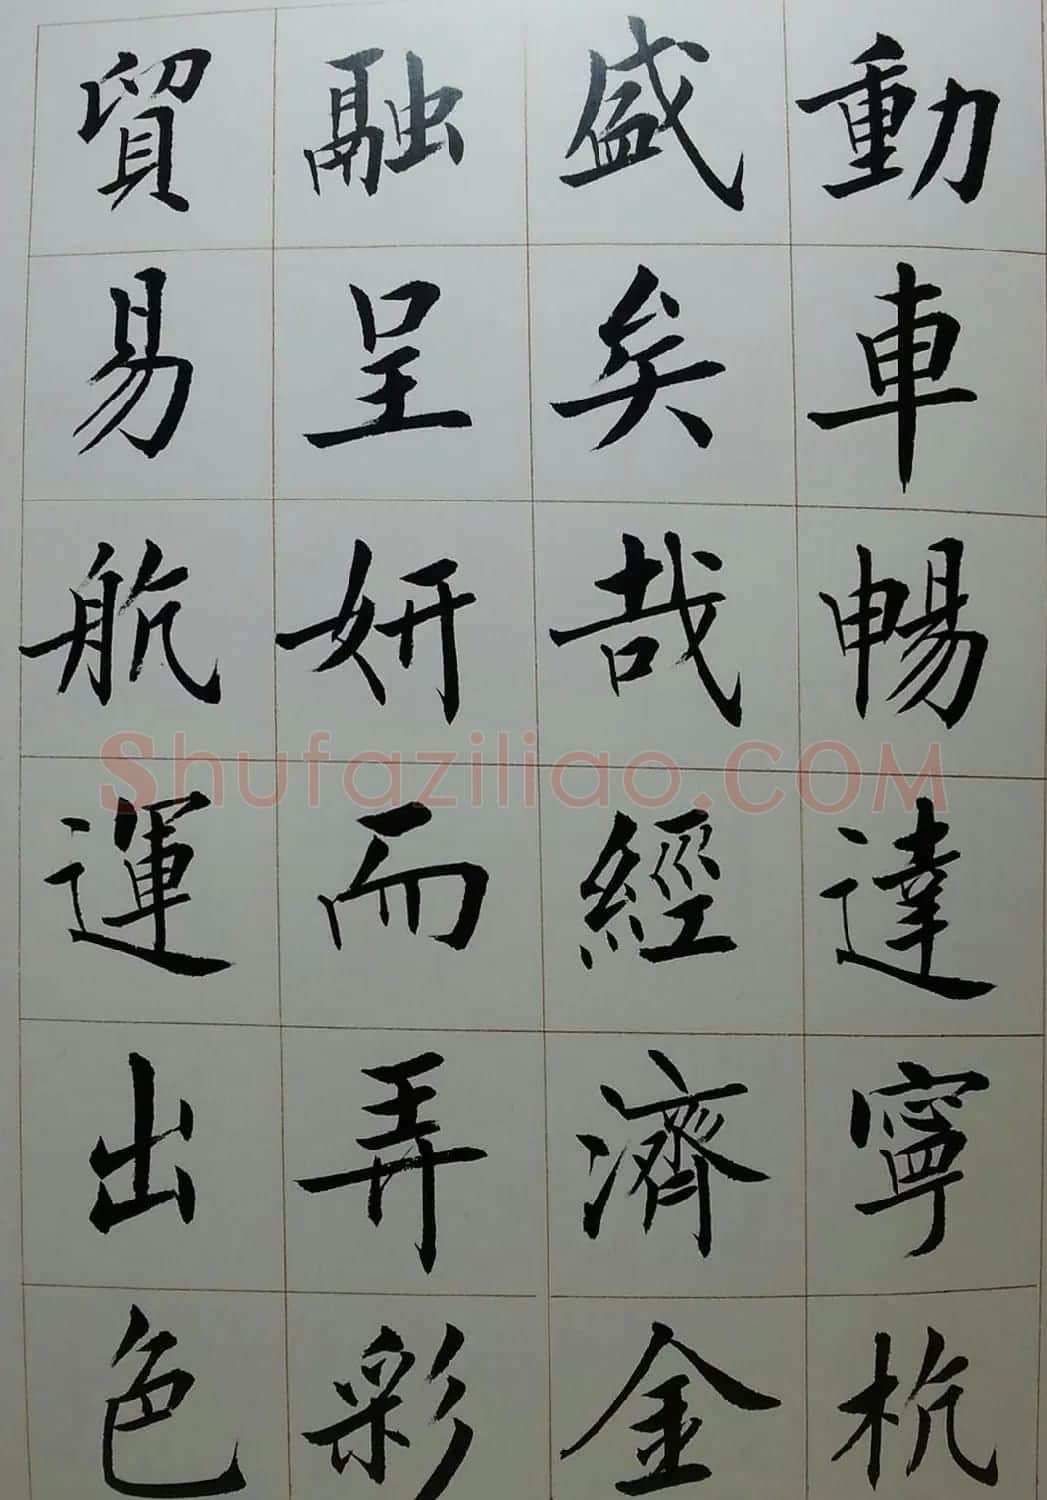 動車暢達寧杭
盛矣哉經濟金
融呈妍而弄彩
貿易航運出色
Shufaziliao.COM